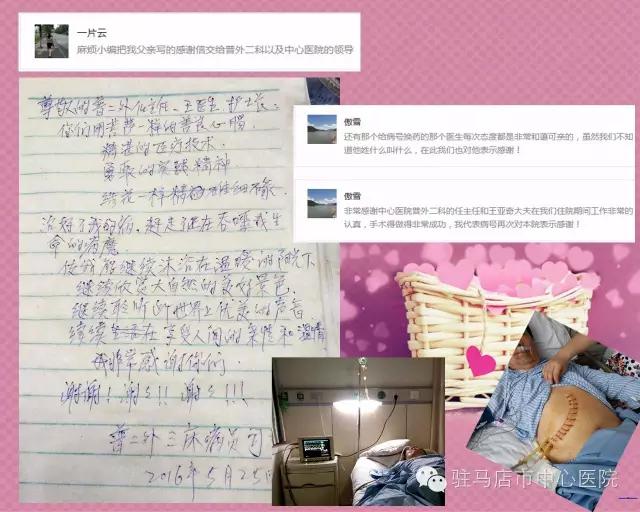 一片云
麻烦小编把我父亲写的感谢信交给普外二科以及中心医院的领导
尊敬的普二外任主任、王医生、护士长:
你们用菩萨一样的善良心肠,
精湛的医疗技术,
勇敢的实践精神
绣花一样精
治好了我的病,赶走了正在吞噬我生
命的病魔,
使我能继续沐浴在温暖
继续欣赏大自然的美好景色,
继续聆听的世界上优美的声音
继续生活在享受人间的亲情和温情,
我非常感谢你们
谢谢!谢谢!!谢谢!!!
普二外三床病员
2016年5月25日
傲雪
还有那个给病号换药的那个医生每次态度都是非常和蔼可亲的,虽然我们不知
道他姓什么叫什么,在此我们也对他表示感谢!
傲雪
非常感谢中心医院普外二科的任主任和王亚奇大夫在我们住院期间工作非常的
认真,手术得做得非常成功,我代表病号再次对本院表示感谢!
驻马店市中心医院